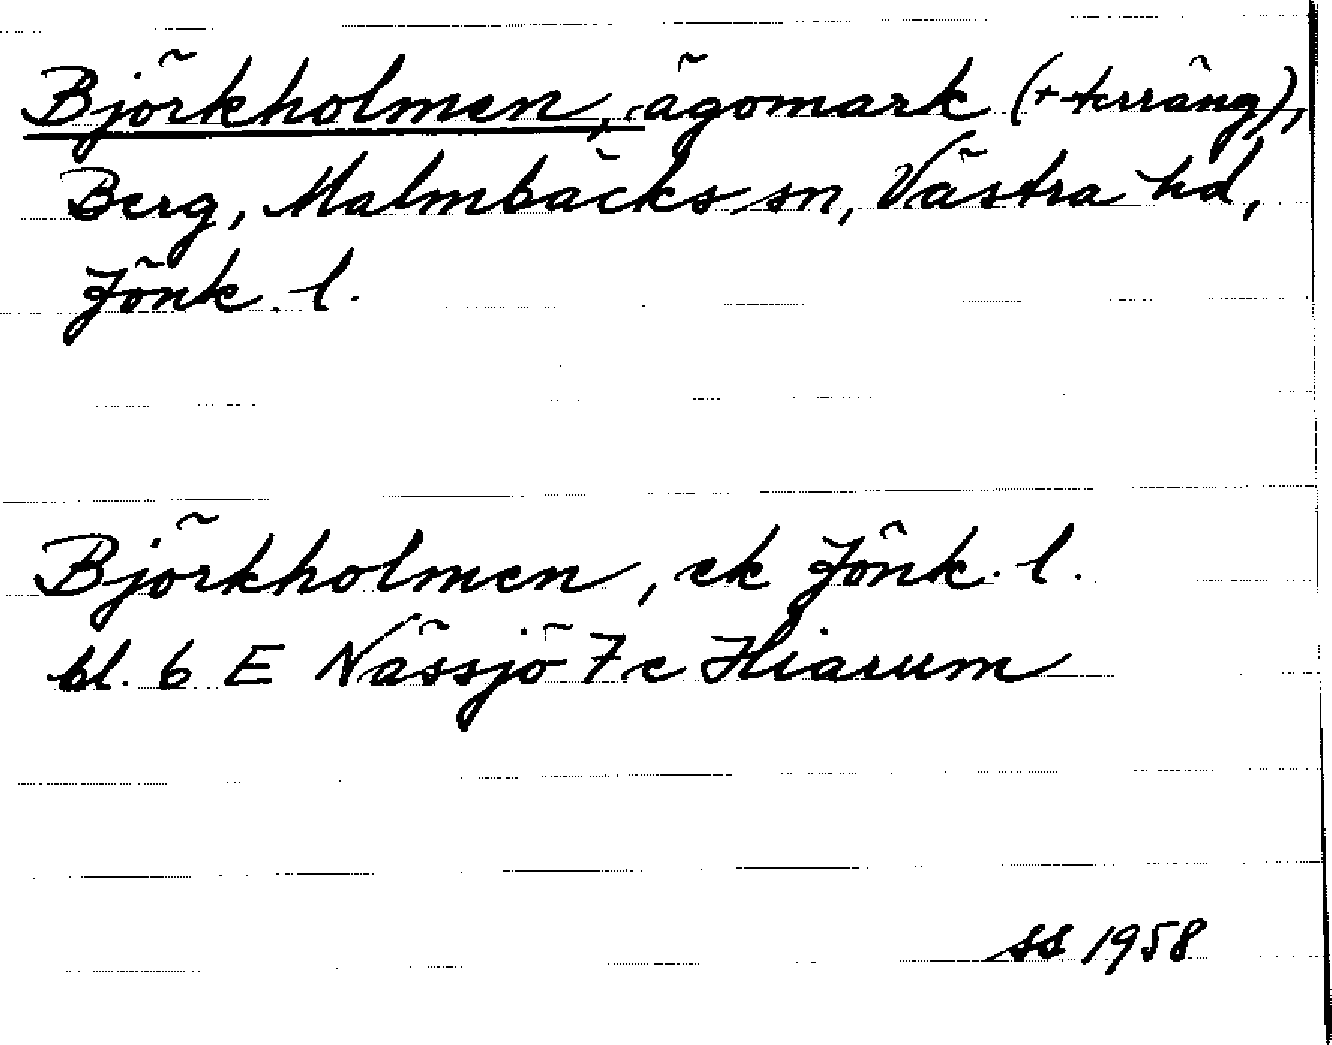 Björkholmen, ägomark (+ terräng),
Berg, Malmbäcks sn, Västra hd,
Jönk. l.
Björkholmen, ek Jönk. l.
bl. 6 E Nässjö 7 c Hiarum
SS 1958